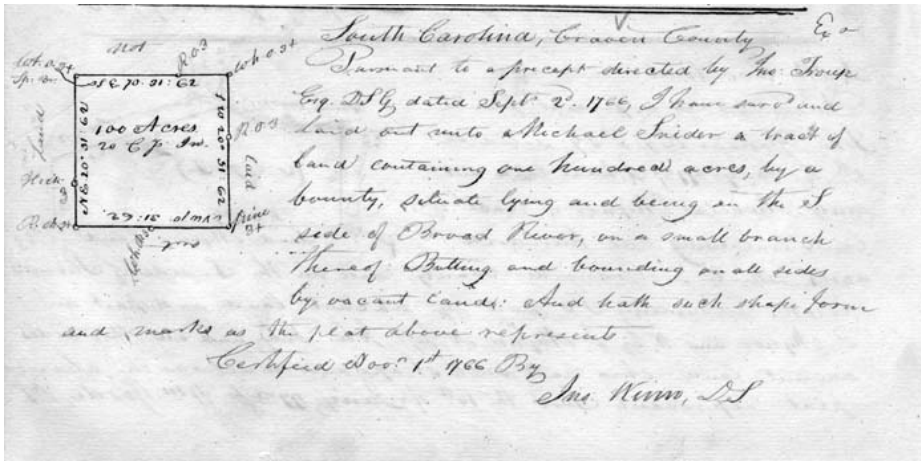 not
R O 3
Wh. o. 3+
100 Acres
20 C. P. In.
R O 3
Laid
Land
Pine
3+
not
South Carolina, Craven County
Pursuant to a precept directed by Jno: Troup
Esq. DSG, dated Septr. 2d. 1766, I have survd and
laid out unto Michael Snider a tract of
land containing one hundred acres, by a
bounty, situate lying and being on the S
side of Broad River, on a small branch
thereof Butting and bounding on all sides
by vacant Land: And hath such shape form
and marks as the plat above represents
Certified 1st 1766 By
Jno. Winn, DS